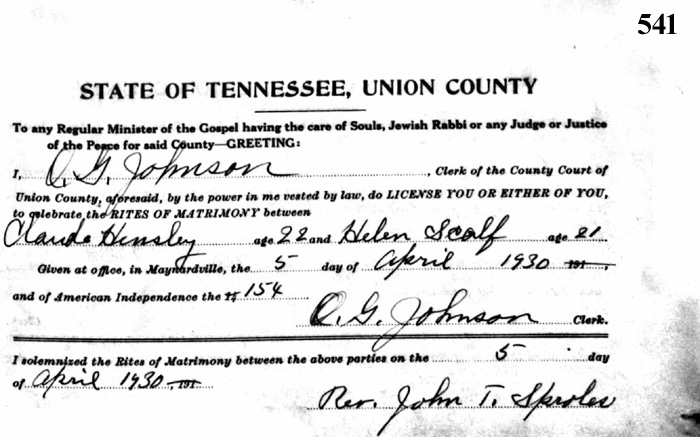 541
STATE OF TENNESSEE, UNION COUNTY
To any Regular Minister of the Gospel having the care of Souls, Jewish Rabbi or any Judge or Justice
of the Peace for said County—GREETING:
I, O. G. Johnson, Clerk of the County Court of
Union County, aforesaid, by the power in me vested by law, do LICENSE YOU OR EITHER OF YOU,
to celebrate the RITES OF MATRIMONY between
Claude Hensley age 22 and Helen Scalf age 21
Given at office, in Maynardville, the 5 day of April 1930 191,
and of American Independence the 154
O. G. Johnson Clerk.
I solemnized the Rites of Matrimony between the above parties on the 5 day
of April 1930, 191
Rev. John T. Sproles